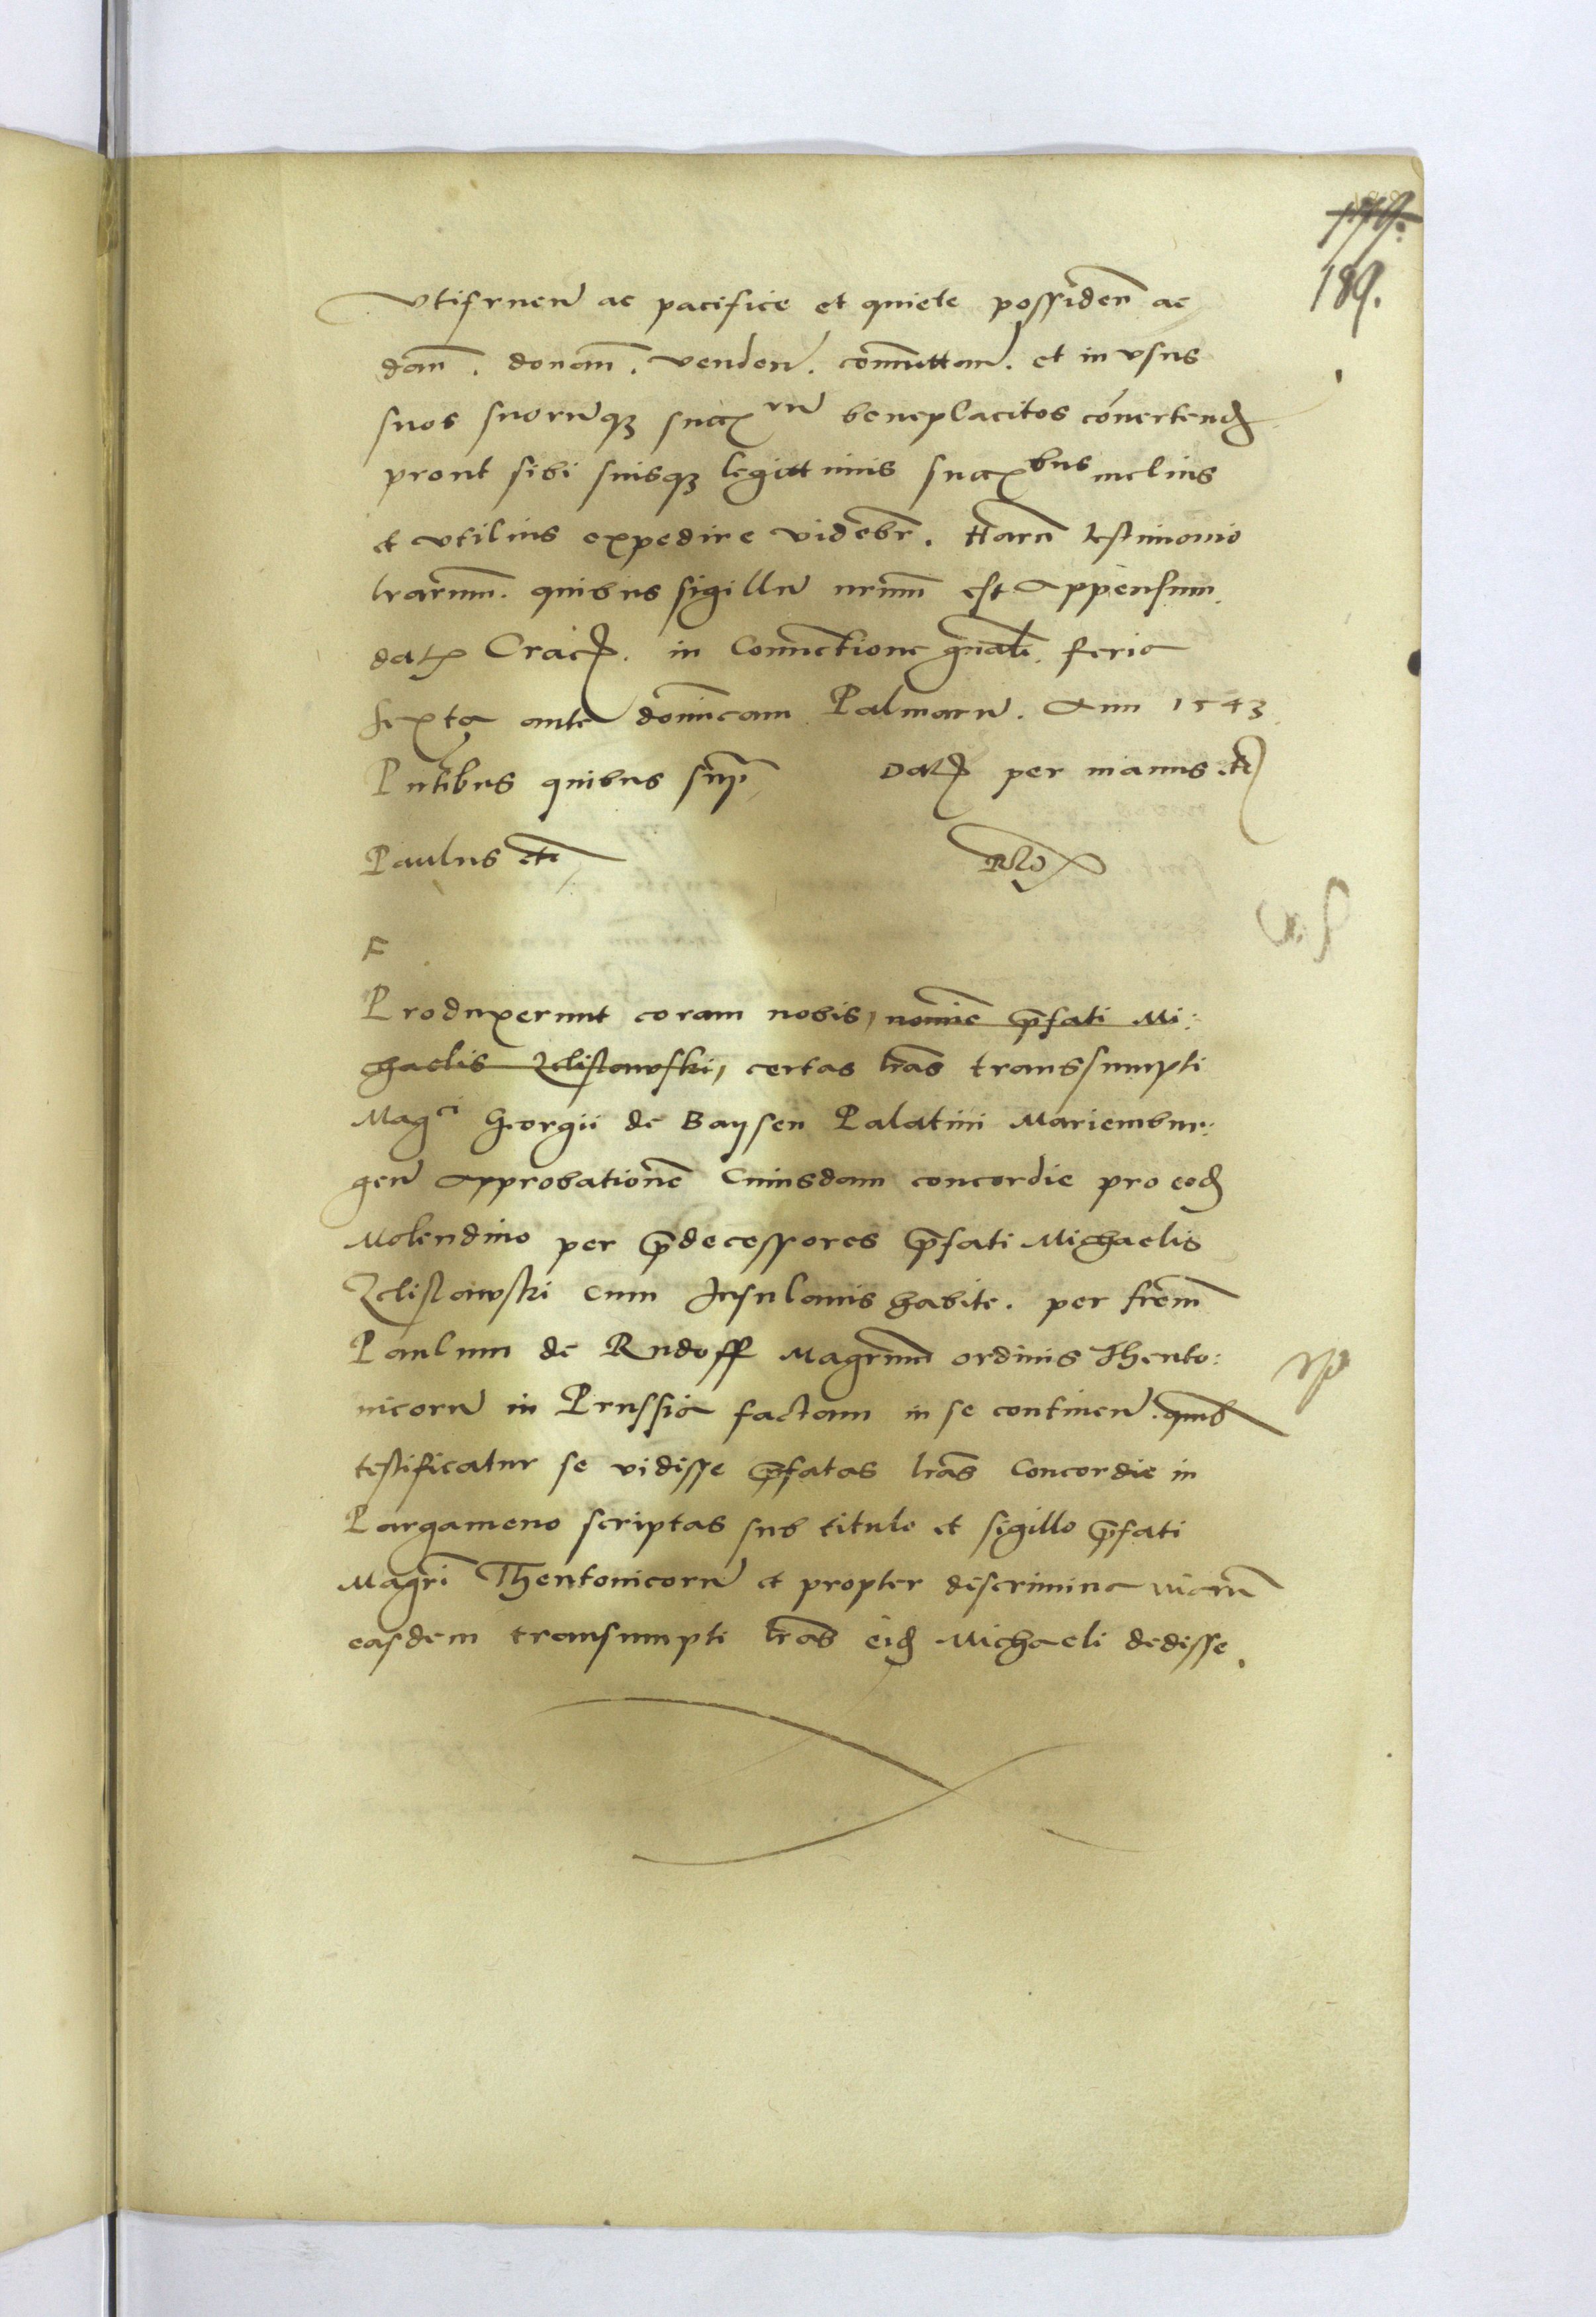 189.
vtifruen̄ ac pacifice et quiete possiden̄ ac
dan̄. donan̄. venden̄. com̄uttan̄. et in vsus
suos suorūqꝫ succ rū beneplacitos cōvertend̄
prout sibi suisqꝫ legittimis succbus melius
et vtilius expedire videbr̄. Harū testimonio
lr̄arum. quibus sigillū nr̄um est appensum.
dat̄ Crac̄. in Conuētione gn̄ali. feria
sexta ante dominicam Palmarū. Ann 1543
Pn̄tibus quibus sup̄ Dat̄ per manus etc
Paulus etc
F
Produxerunt coram nobis, nomīe p̄fati Mi:
chaelis Zelislawski, certas lr̄as transsumpti
Magci Georgii de Baysen Palatini Mariembur:
gen̄ approbationē Cuiusdam concordie pro eod̄
Molendino per p̄decessores p̄fati Michaelis
Zelislawski cum Insulanis habite. per fr̄em
Paulum de Rudoff Magr̄um ordinis Theuto:
nicorū in Prussia factam in se continen̄. quib
testificatur se vidisse p̄fatas lr̄as Concordie in
Pargameno scriptas sub titulo et sigillo p̄fati
Magr̄i Theutonicorū et propter discrimina viarū
easdem transumpti lr̄as eid̄ Michaeli dedisse.